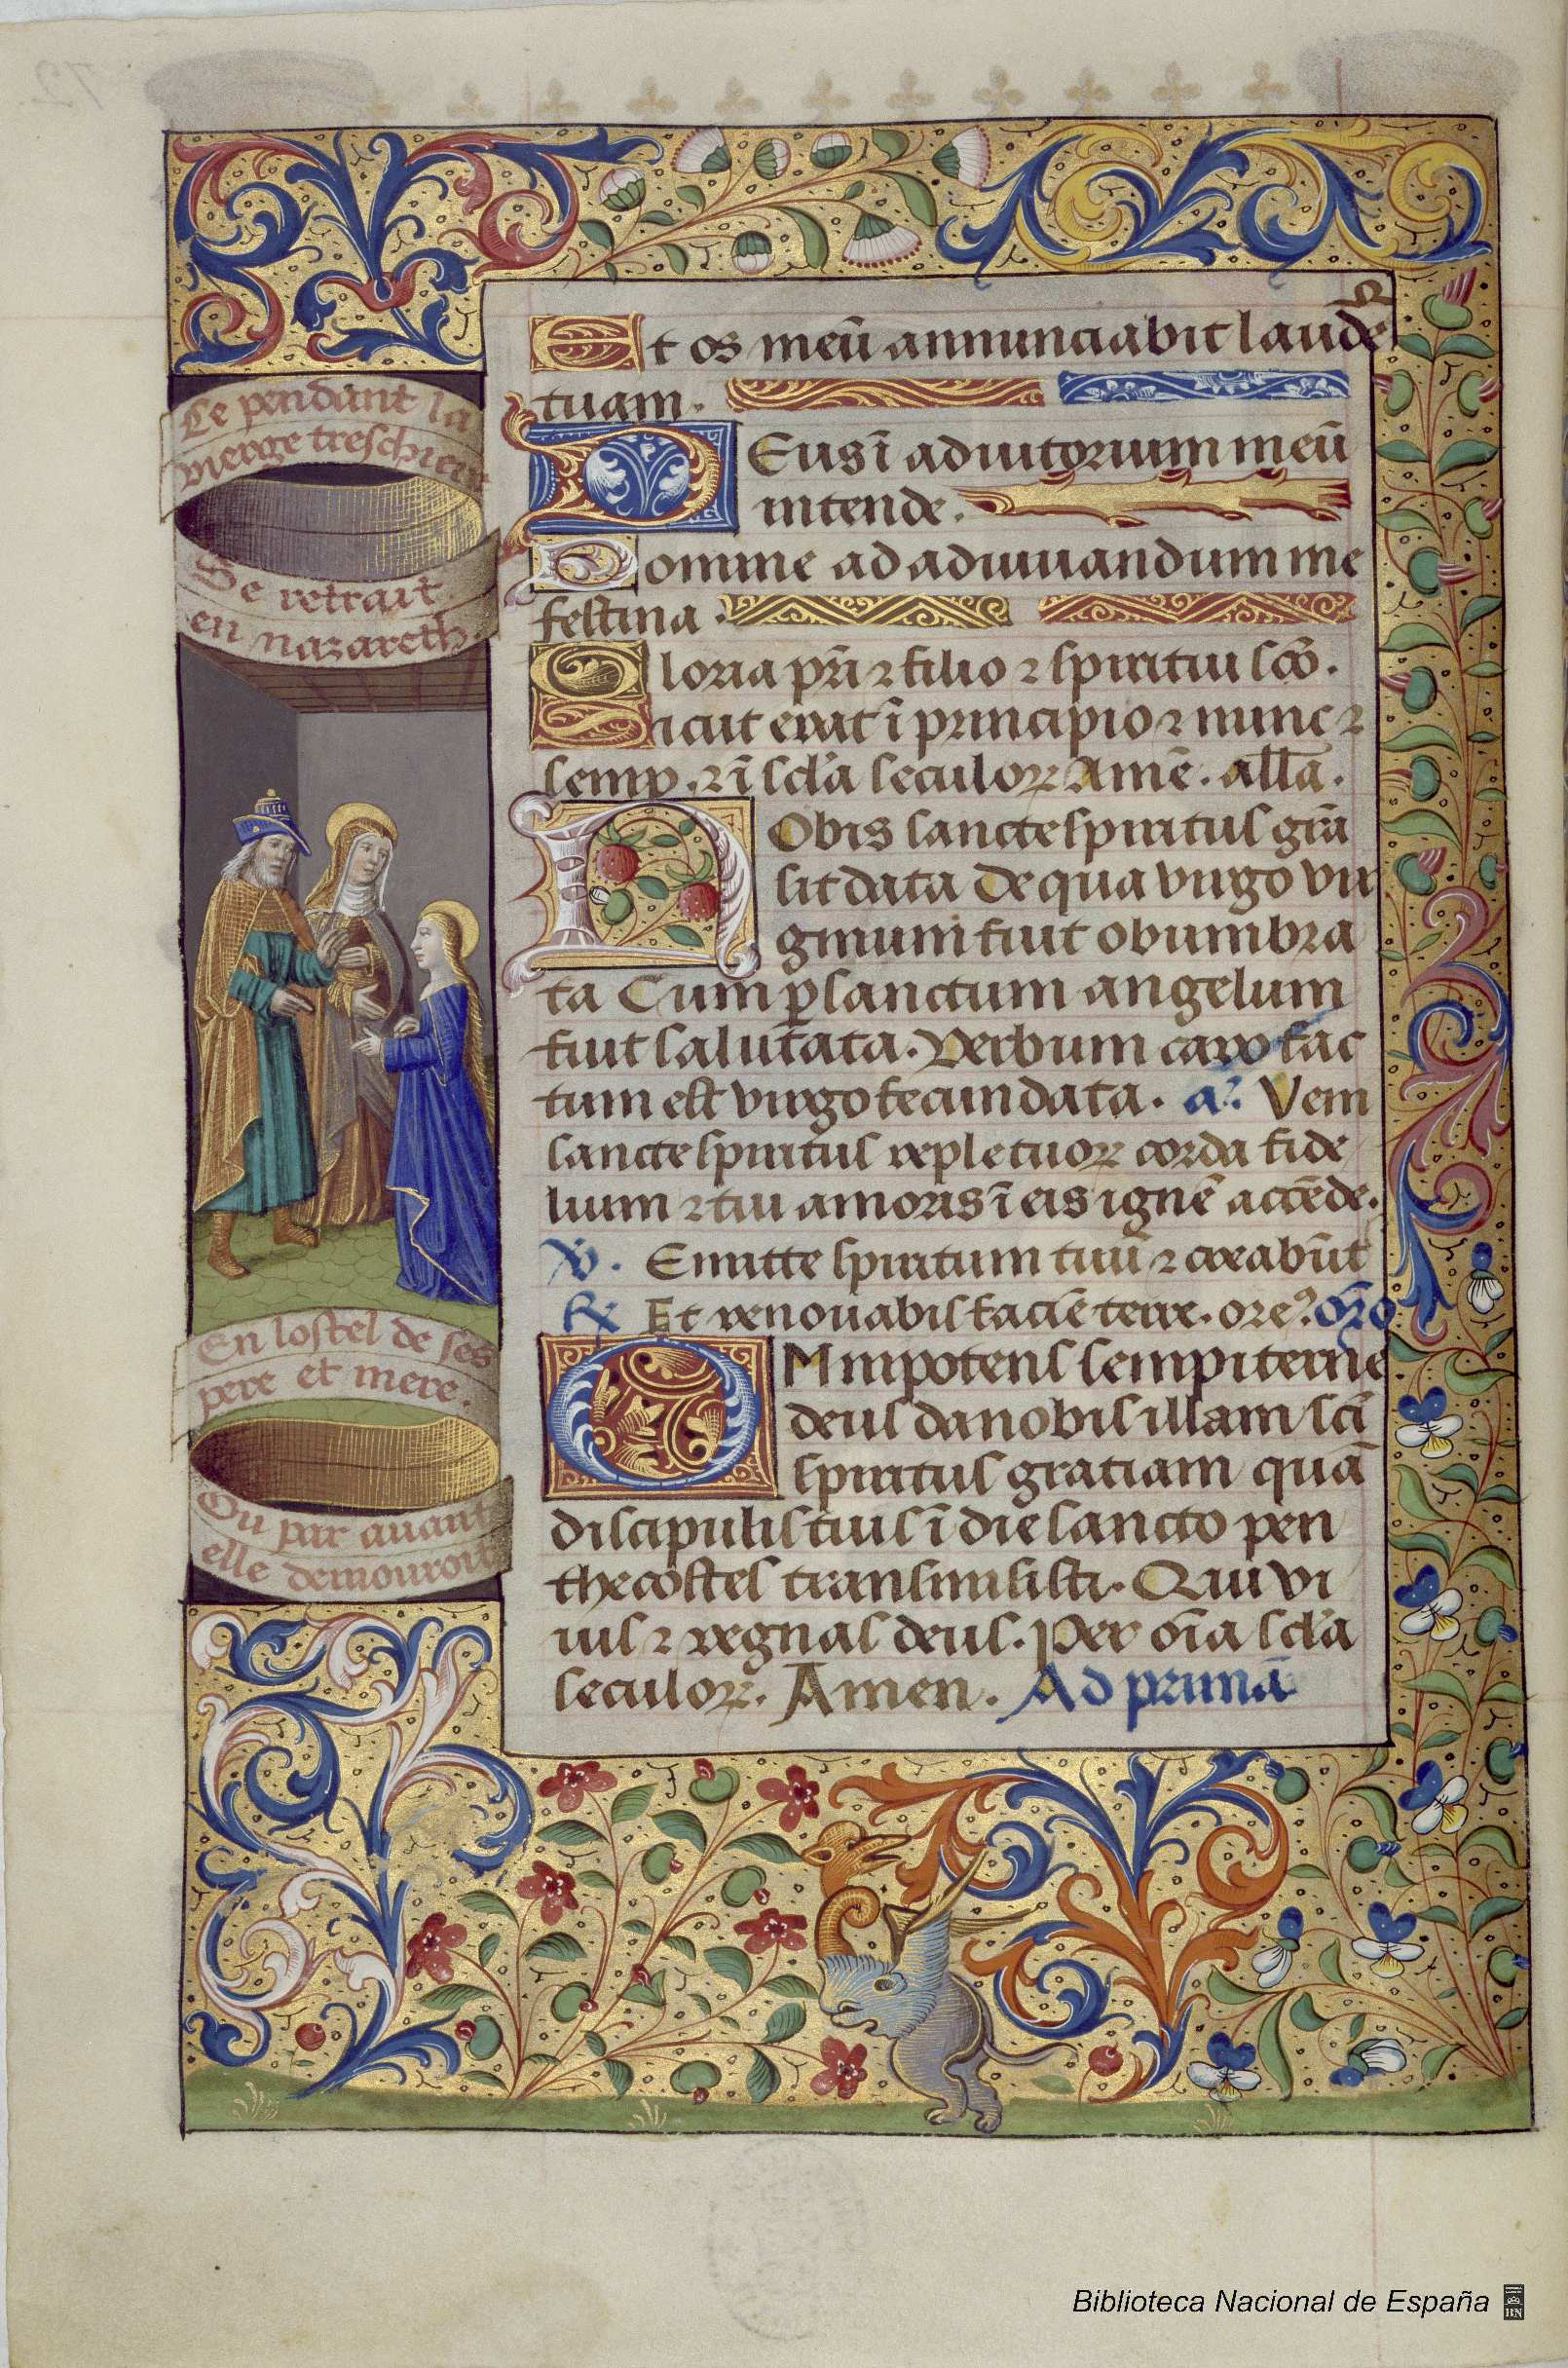 Ce pendant la
vierge treschiere
Se retrait
en nazareth.
En lostel de ses
pere et mere.
Ou par auant
elle demouroit
Et os meū annunciabit laudē
tuam.
Deus ī adiutorium meū
intende.
Domine ad adiuuandum me
festina.
Gloria pr̄i ⁊ filio ⁊ spiritui sc̄o.
Sicut erat ī principio ⁊ nunc ⁊
semp. ⁊ ī scl̄a seculoꝝ Amē. all̄a.
Nobis sancte spiritus gr̄a
sit data De qua virgo vir
ginum fuit obumbra
ta Cum ꝑ sanctum angelum
fuit salutata. Verbum caro fac
tum est virgo fecundata. aꝰ. Veni
sancte spiritus reple tuoꝝ corda fide
lium ⁊ tui amoris ī eis ignē accēde.
℣. Emitte spiritum tuū ⁊ creabūt
℟ Et renouabis faciē terre. oreꝰ. or̄o
OMnipotens sempiterne
deus da nobis illam sc̄i
spiritus gratiam quā
discipulis tuis ī die sancto pen
thecostes transmisisti. Qui vi
uis ⁊ regnas deus. Per oīa scl̄a
seculoꝝ. Amen. Ad primā
Biblioteca Nacional de España
BN